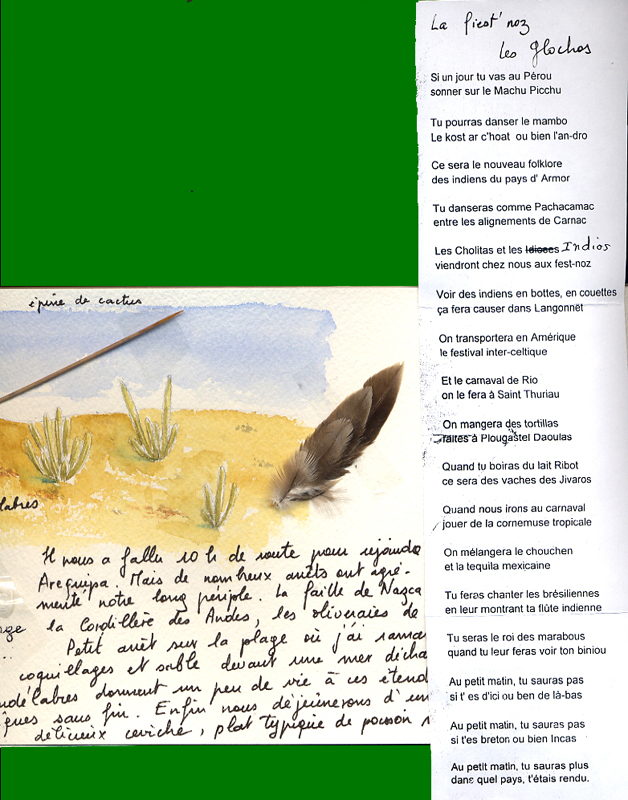 épine de cactus
Il nous a fallu 10 h de route pour rejoindre
Arequipa. Mais de nombreux arrêts ont agré-
menté notre long périple. La faille de Nazca
la Cordillère des Andes, les oliveraies de
Petit arrêt sur la plage où j'ai ramas
coquillages et sable devant une mer décha
ndélabres donnent un peu de vie à ces étend
ques sans fin. Enfin nous déjeunerons d'un
délicieux ceviche, plat typique de poisson
La fiest'noz
les Glochos
Si un jour tu vas au Pérou
sonner sur le Machu Picchu
Tu pourras danser le mambo
Le kost ar c'hoat ou bien l'an-dro
Ce sera le nouveau folklore
des indiens du pays d' Armor
Tu danseras comme Pachacamac
entre les alignements de Carnac
Les Cholitas et les Indios
viendront chez nous aux fest-noz
Voir des indiens en bottes, en couettes
ça fera causer dans Langonnët
On transportera en Amérique
le festival inter-celtique
Et le carnaval de Rio
on le fera à Saint Thuriau
On mangera des tortillas
faites à Plougastel Daoulas
Quand tu boiras du lait Ribot
ce sera des vaches des Jivaros
Quand nous irons au carnaval
jouer de la cornemuse tropicale
On mélangera le chouchen
et la tequila mexicaine
Tu feras chanter les brésiliennes
en leur montrant ta flûte indienne
Tu seras le roi des marabous
quand tu leur feras voir ton biniou
Au petit matin, tu sauras pas
si t' es d'ici ou ben de là-bas
Au petit matin, tu sauras pas
si t'es breton ou bien Incas
Au petit matin, tu sauras plus
dans quel pays, t'étais rendu.